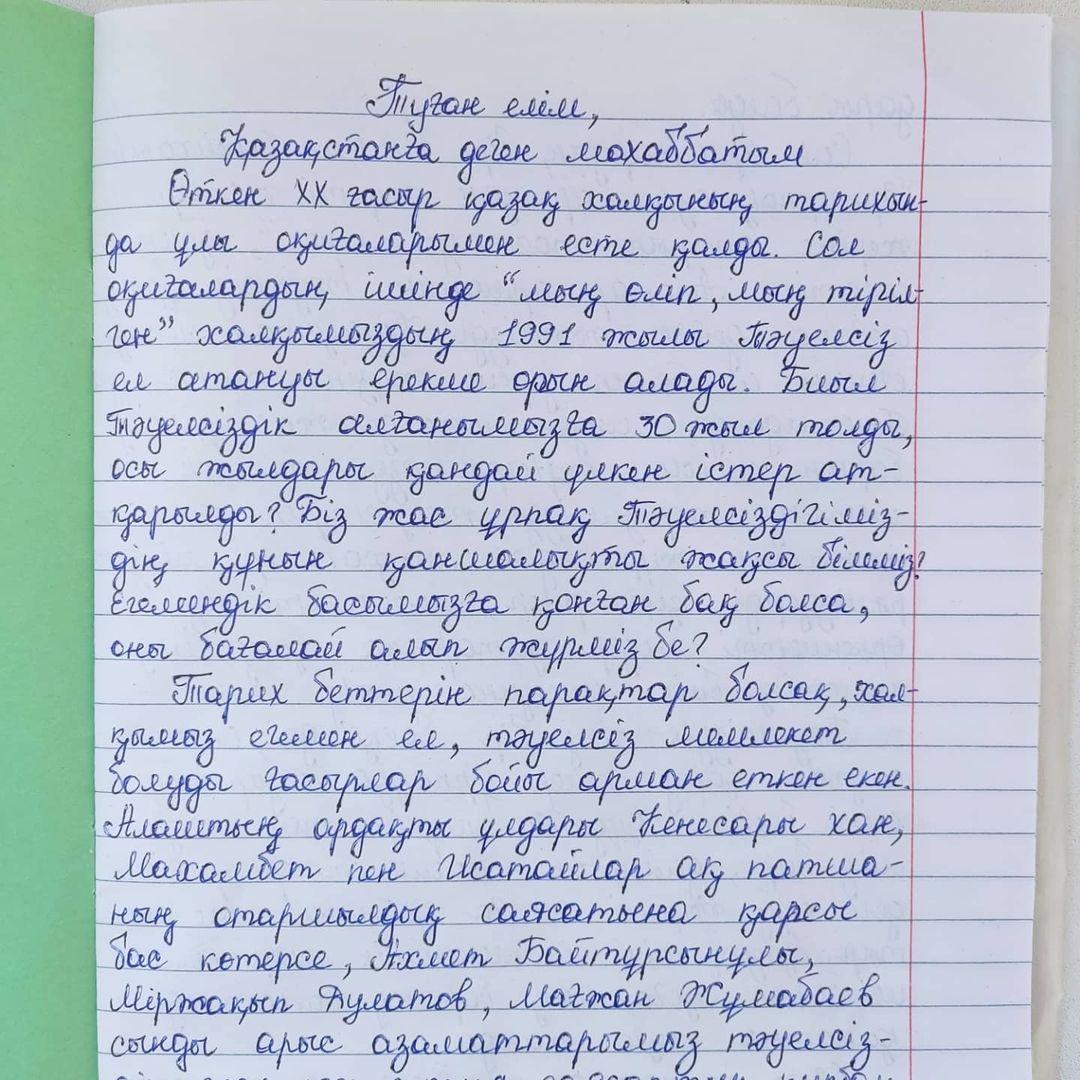 Туған елім,
Қазақстанға деген махаббатым
Өткен XX ғасыр қазақ халқының тарихын-
да ұлы оқиғаларымен есте қалды. Сол
оқиғалардың ішінде “мың өліп, мың тіріл-
ген” халқымыздың 1991 жылы Тәуелсіз
ел атануы ерекше орын алады. Биыл
Тәуелсіздік алғанымызға 30 жыл толды,
осы жылдары қандай үлкен істер ат-
қарылды? Біз жас ұрпақ Тәуелсіздігіміз-
дің құнын қаншалықты жақсы білеміз?
Егемендік басымызға қонған бақ болса,
оны бағалай алып жүрміз бе?
Тарих беттерін парақтар болсақ, хал-
қымыз егемен ел, тәуелсіз мемлекет
болуды ғасырлар бойы арман еткен екен.
Алаштың ардақты ұлдары Кенесары хан,
Махамбет пен Исатайлар ақ патша-
ның отаршылдық саясатына қарсы
бас көтерсе, Ахмет Байтұрсынұлы,
Міржақып Дулатов, Мағжан Жұмабаев
сынды арыс азаматтарымыз тәуелсіз-